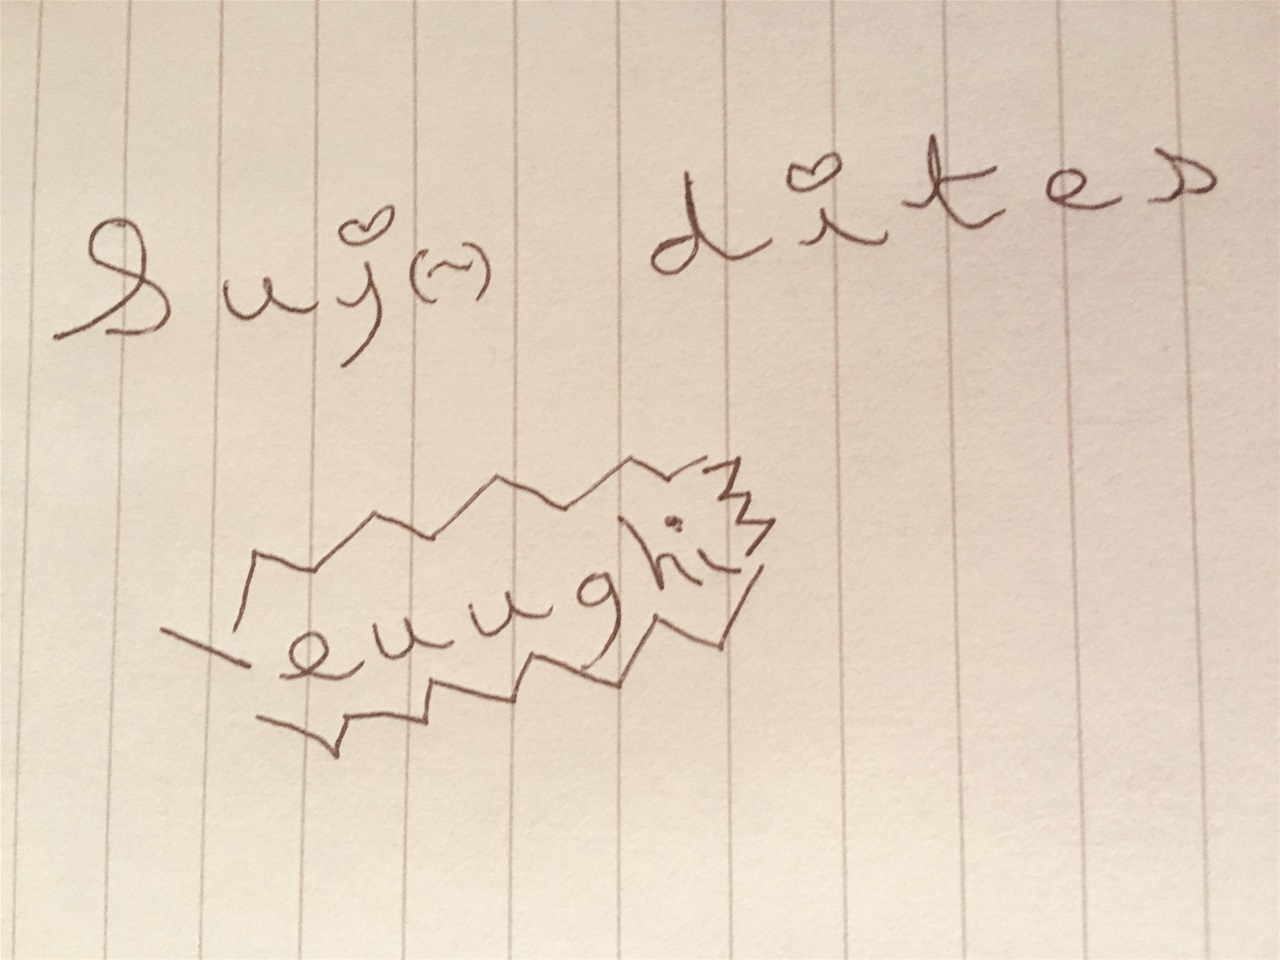 Suj(~) dites
euughi